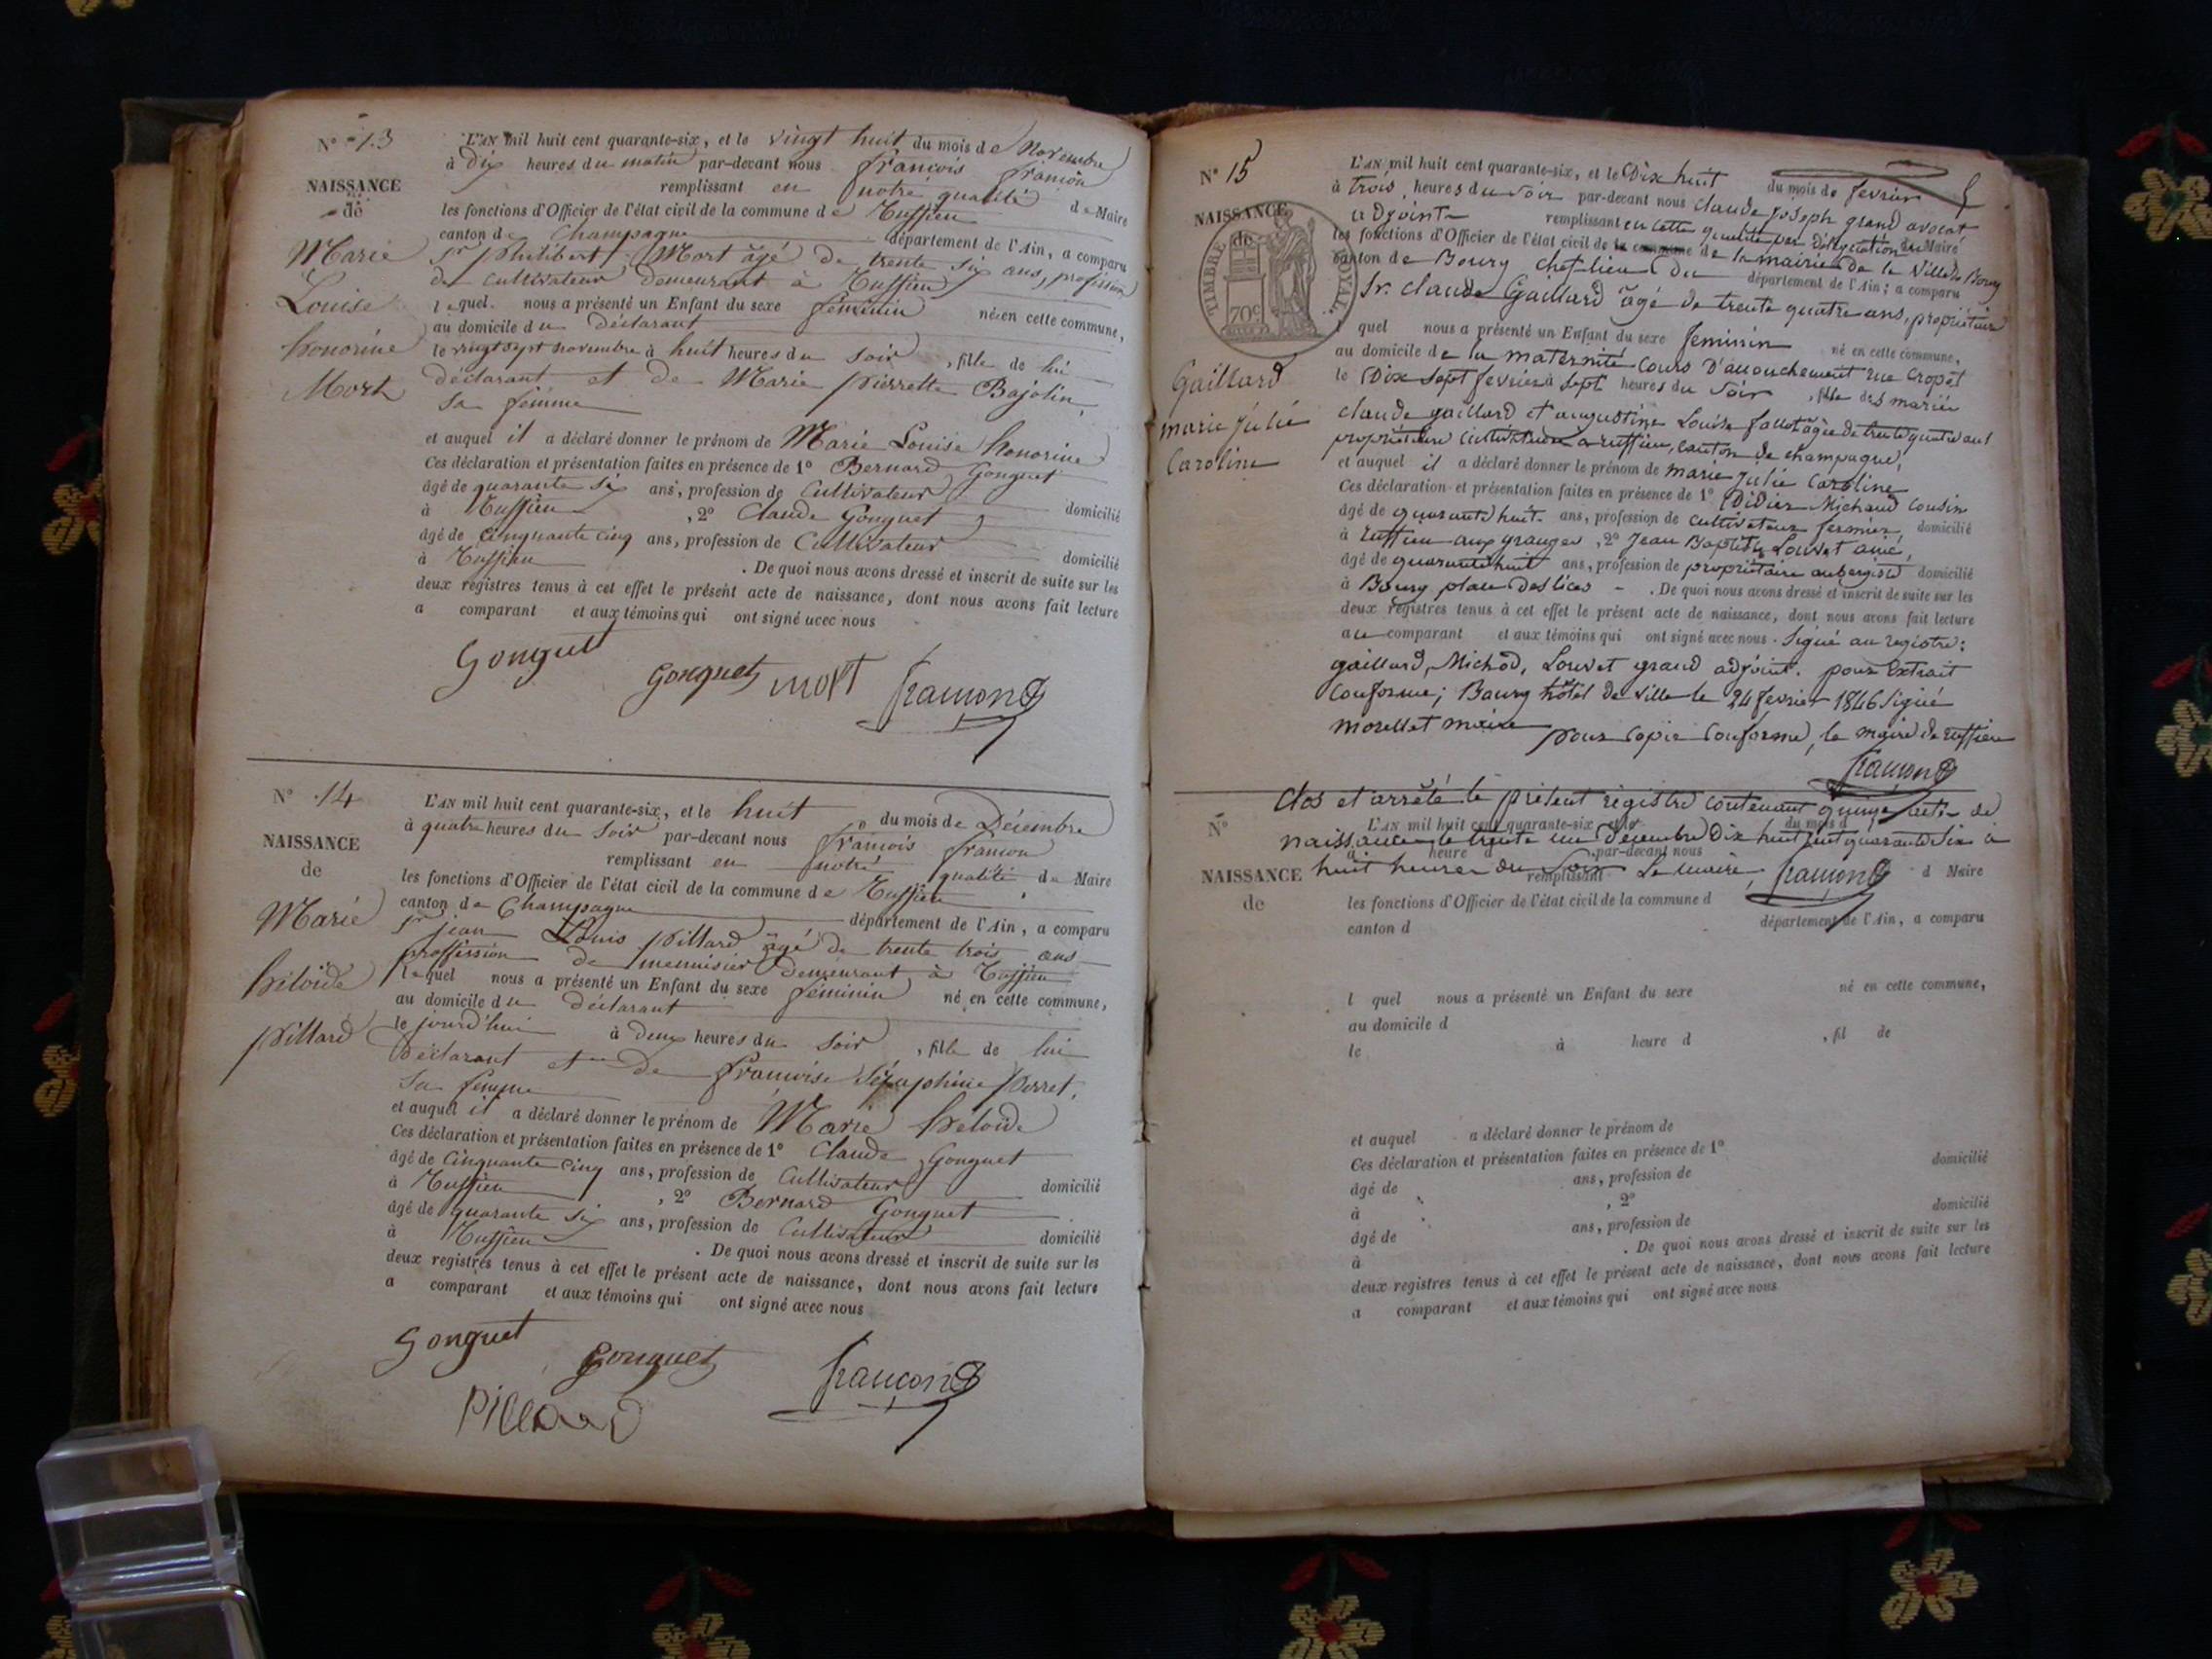 N° 13
NAISSANCE
de
Marie
Louise
honorine
Mort
L'AN mil huit cent quarante-six, et le vingt huit du mois de Novembre
à dix heures du matin par-devant nous françois françon
remplissant en notre qualité de Maire
les fonctions d'Officier de l'état civil de la commune de Ruffieu
canton de Champagne département de l'Ain, a comparu
Sr philibert Mort âgé de trente six ans, profession
de cultivateur demeurant à Ruffieu
lequel nous a présenté un Enfant du sexe féminin né en cette commune,
au domicile du déclarant
le vingt sept novembre à huit heures du soir, fille de lui
déclarant et de Marie pierrette Bajolin,
sa femme
et auquel il a déclaré donner le prénom de Marie Louise honorine
Ces déclaration et présentation faites en présence de 1° Bernard Gonguet
âgé de quarante six ans, profession de Cultivateur domicilié
à Ruffieu, 2° Claude Gonguet
âgé de cinquante cinq ans, profession de Cultivateur domicilié
à Ruffieu. De quoi nous avons dressé et inscrit de suite sur les
deux registres tenus à cet effet le présent acte de naissance, dont nous avons fait lecture
a comparant et aux témoins qui ont signé avec nous
Gonguet Gonguet mort françon
N° 14
NAISSANCE
de
Marie
héloïde
pillard
L'AN mil huit cent quarante-six, et le huit du mois de Décembre
à quatre heures du soir par-devant nous françois françon
remplissant en notre qualité de Maire
les fonctions d'Officier de l'état civil de la commune de Ruffieu
canton de Champagne département de l'Ain, a comparu
Sr jean Louis pillard âgé de trente trois ans
proffession de menuisier demeurant à Ruffieu
lequel nous a présenté un Enfant du sexe féminin né en cette commune,
au domicile du déclarant
le jourd'hui à deux heures du soir, fille de lui
déclarant et de françoise Séraphine perret,
sa femme
et auquel il a déclaré donner le prénom de Marie héloïde
Ces déclaration et présentation faites en présence de 1° Claude Gonguet
âgé de cinquante cinq ans, profession de Cultivateur domicilié
à Ruffieu, 2° Bernard Gonguet
âgé de quarante six ans, profession de Cultivateur domicilié
à Ruffieu. De quoi nous avons dressé et inscrit de suite sur les
deux registres tenus à cet effet le présent acte de naissance, dont nous avons fait lecture
a comparant et aux témoins qui ont signé avec nous
Gonguet Gonguet françon
Pillard
N° 15
NAISSANCE
de
TIMBRE ROYAL.
70c
Gaillard
marie julie
Caroline
L'AN mil huit cent quarante-six, et le Dix huit du mois de fevrier
à trois heures du soir par-devant nous claude joseph grand avocat
adjoint remplissant en cette qualité par délégation du Maire
les fonctions d'Officier de l'état civil de la commune de la mairie de la Ville de Bourg
canton de Bourg chef-lieu du département de l'Ain; a comparu
Sr. claude Gaillard âgé de trente quatre ans, propriétaire
l quel nous a présenté un Enfant du sexe feminin né en cette commune,
au domicile de la maternité Cours D'accouchement rue Cropet
le Dix sept fevrier à sept heures du soir, fille des mariés
claude gaillard et augustine Louise fallot âgée de trente quatre ans
propriétaire cultivatrice a ruffieu, canton de champagne,
et auquel il a déclaré donner le prénom de marie julie Caroline
Ces déclaration et présentation faites en présence de 1° Didier Michaud Cousin
âgé de quarante huit ans, profession de cultivateur fermier domicilié
à ruffieu aux granges, 2° Jean Baptiste Louvet ami,
âgé de quarante huit ans, profession de propriétaire aubergiste domicilié
à Bourg place des lices. De quoi nous avons dressé et inscrit de suite sur les
deux registres tenus à cet effet le présent acte de naissance, dont nous avons fait lecture
au comparant et aux témoins qui ont signé avec nous. Signé au registre:
gaillard, Michod, Louvet grand adjoint. pour Extrait
Conforme; Bourg hôtel de ville le 24 fevrier 1846 signé
morellet maire
pour Copie Conforme, le maire de ruffieu
françon
Clos et arrêté le présent registre contenant quinze acte de
naissance le trente un décembre Dix huit cent quarante six à
huit heures du soir Le maire, françon
N°
NAISSANCE
de
L'AN mil huit cent quarante-six et le du mois d
à heure d par-devant nous
remplissant d Maire
les fonctions d'Officier de l'état civil de la commune d
canton d département de l'Ain, a comparu
l quel nous a présenté un Enfant du sexe né en cette commune,
au domicile d
le à heure d, fil de
et auquel a déclaré donner le prénom de
Ces déclaration et présentation faites en présence de 1°
âgé de ans, profession de domicilié
à, 2°
âgé de ans, profession de domicilié
à. De quoi nous avons dressé et inscrit de suite sur les
deux registres tenus à cet effet le présent acte de naissance, dont nous avons fait lecture
a comparant et aux témoins qui ont signé avec nous